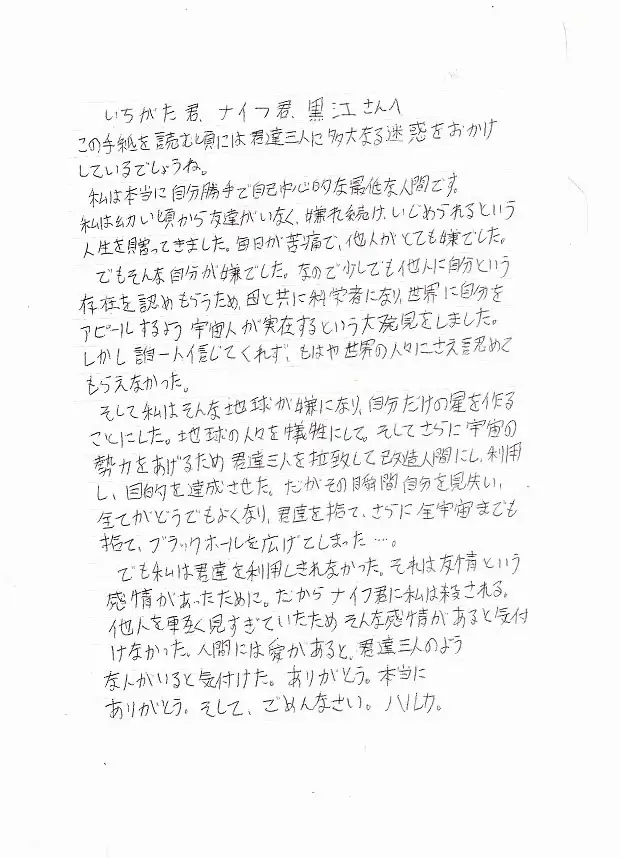 いちがた君、ナイフ君、黒江さんへ
この手紙を読む頃には君達三人に多大なる迷惑をおかけ
しているでしょうね。
私は本当に自分勝手で自己中心的な最低な人間です。
私は幼い頃から友達がいなく、嫌れ続け、いじめられるという
人生を贈ってきました。毎日が苦痛で、他人がとても嫌でした。
でもそんな自分が嫌でした。なので少しでも他人に自分という
存在を認めもらうため、母と共に科学者になり、世界に自分を
アピールするよう宇宙人が実在するという大発見をしました。
しかし誰一人信じてくれず、もはや世界の人々にさえ認めて
もらえなかった。
そして私はそんな地球が嫌になり、自分だけの星を作る
ことにした。地球の人々を犠牲にして。そしてさらに宇宙の
勢力をあげるため君達三人を拉致して改造人間にし、利用
し、目的を達成させた。だがその瞬間自分を見失い、
全てがどうでもよくなり、君達を捨て、さらに全宇宙までも
捨て、ブラックホールを広げてしまった…。
でも私は君達を利用しきれなかった。それは友情という
感情があったために。だからナイフ君に私は殺される。
他人を悪く見すぎていたためそんな感情があると気付
けなかった、人間には愛があると、君達三人のよう
な人がいると気付けた。ありがとう。本当に
ありがとう。そして、ごめんなさい。ハルカ。